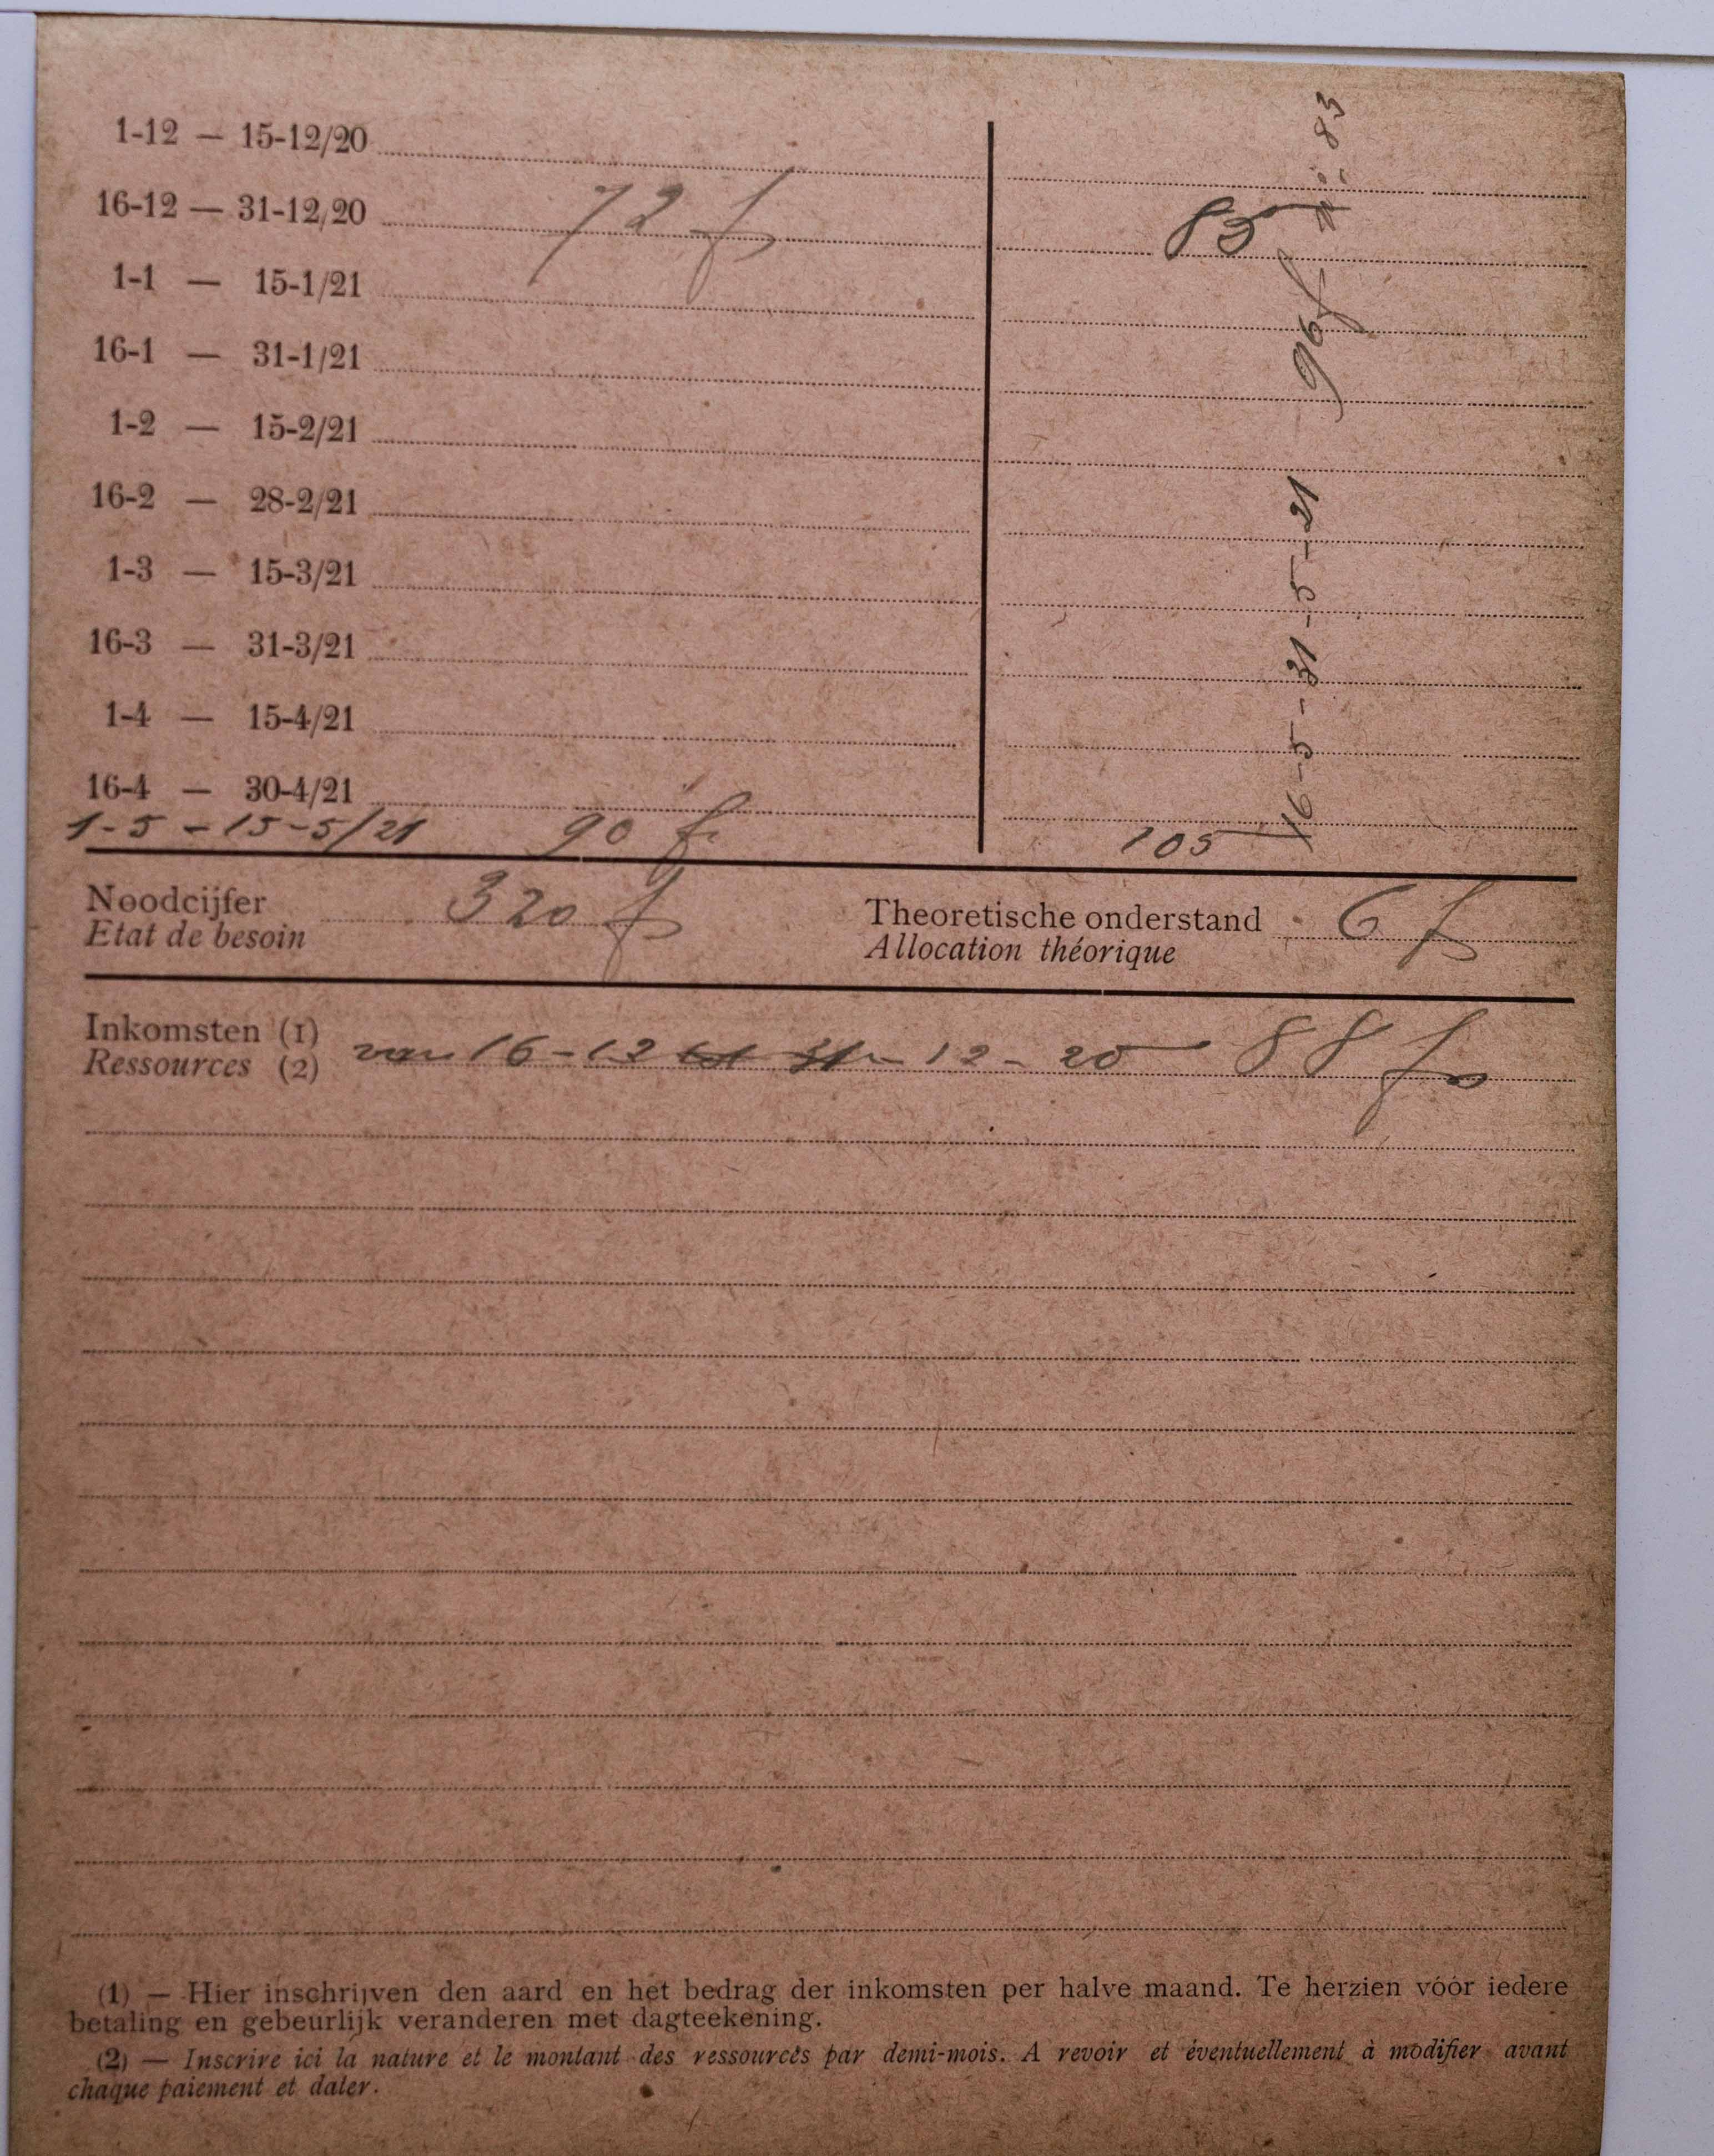 1-12 — 15-12/20
16-12 — 31-12/20 72 f 85
1-1 — 15-1/21
16-1 — 31-1/21
1-2 — 15-2/21
16-2 — 28-2/21
1-3 — 15-3/21
16-3 — 31-3/21
1-4 — 15-4/21
16-4 — 30-4/21
1-5 - 15-5/21 90 f 105
16-5 - 31-5-21 96 f n° 83
Noodcijfer 320 f Theoretische onderstand 6 f
Etat de besoin Allocation théorique
Inkomsten (1)
Ressources (2) van 16-12 tot 31-12-20 88 f
(1) — Hier inschrijven den aard en het bedrag der inkomsten per halve maand. Te herzien vóór iedere
betaling en gebeurlijk veranderen met dagteekening.
(2) — Inscrire ici la nature et le montant des ressources par demi-mois. A revoir et éventuellement à modifier avant
chaque paiement et dater.